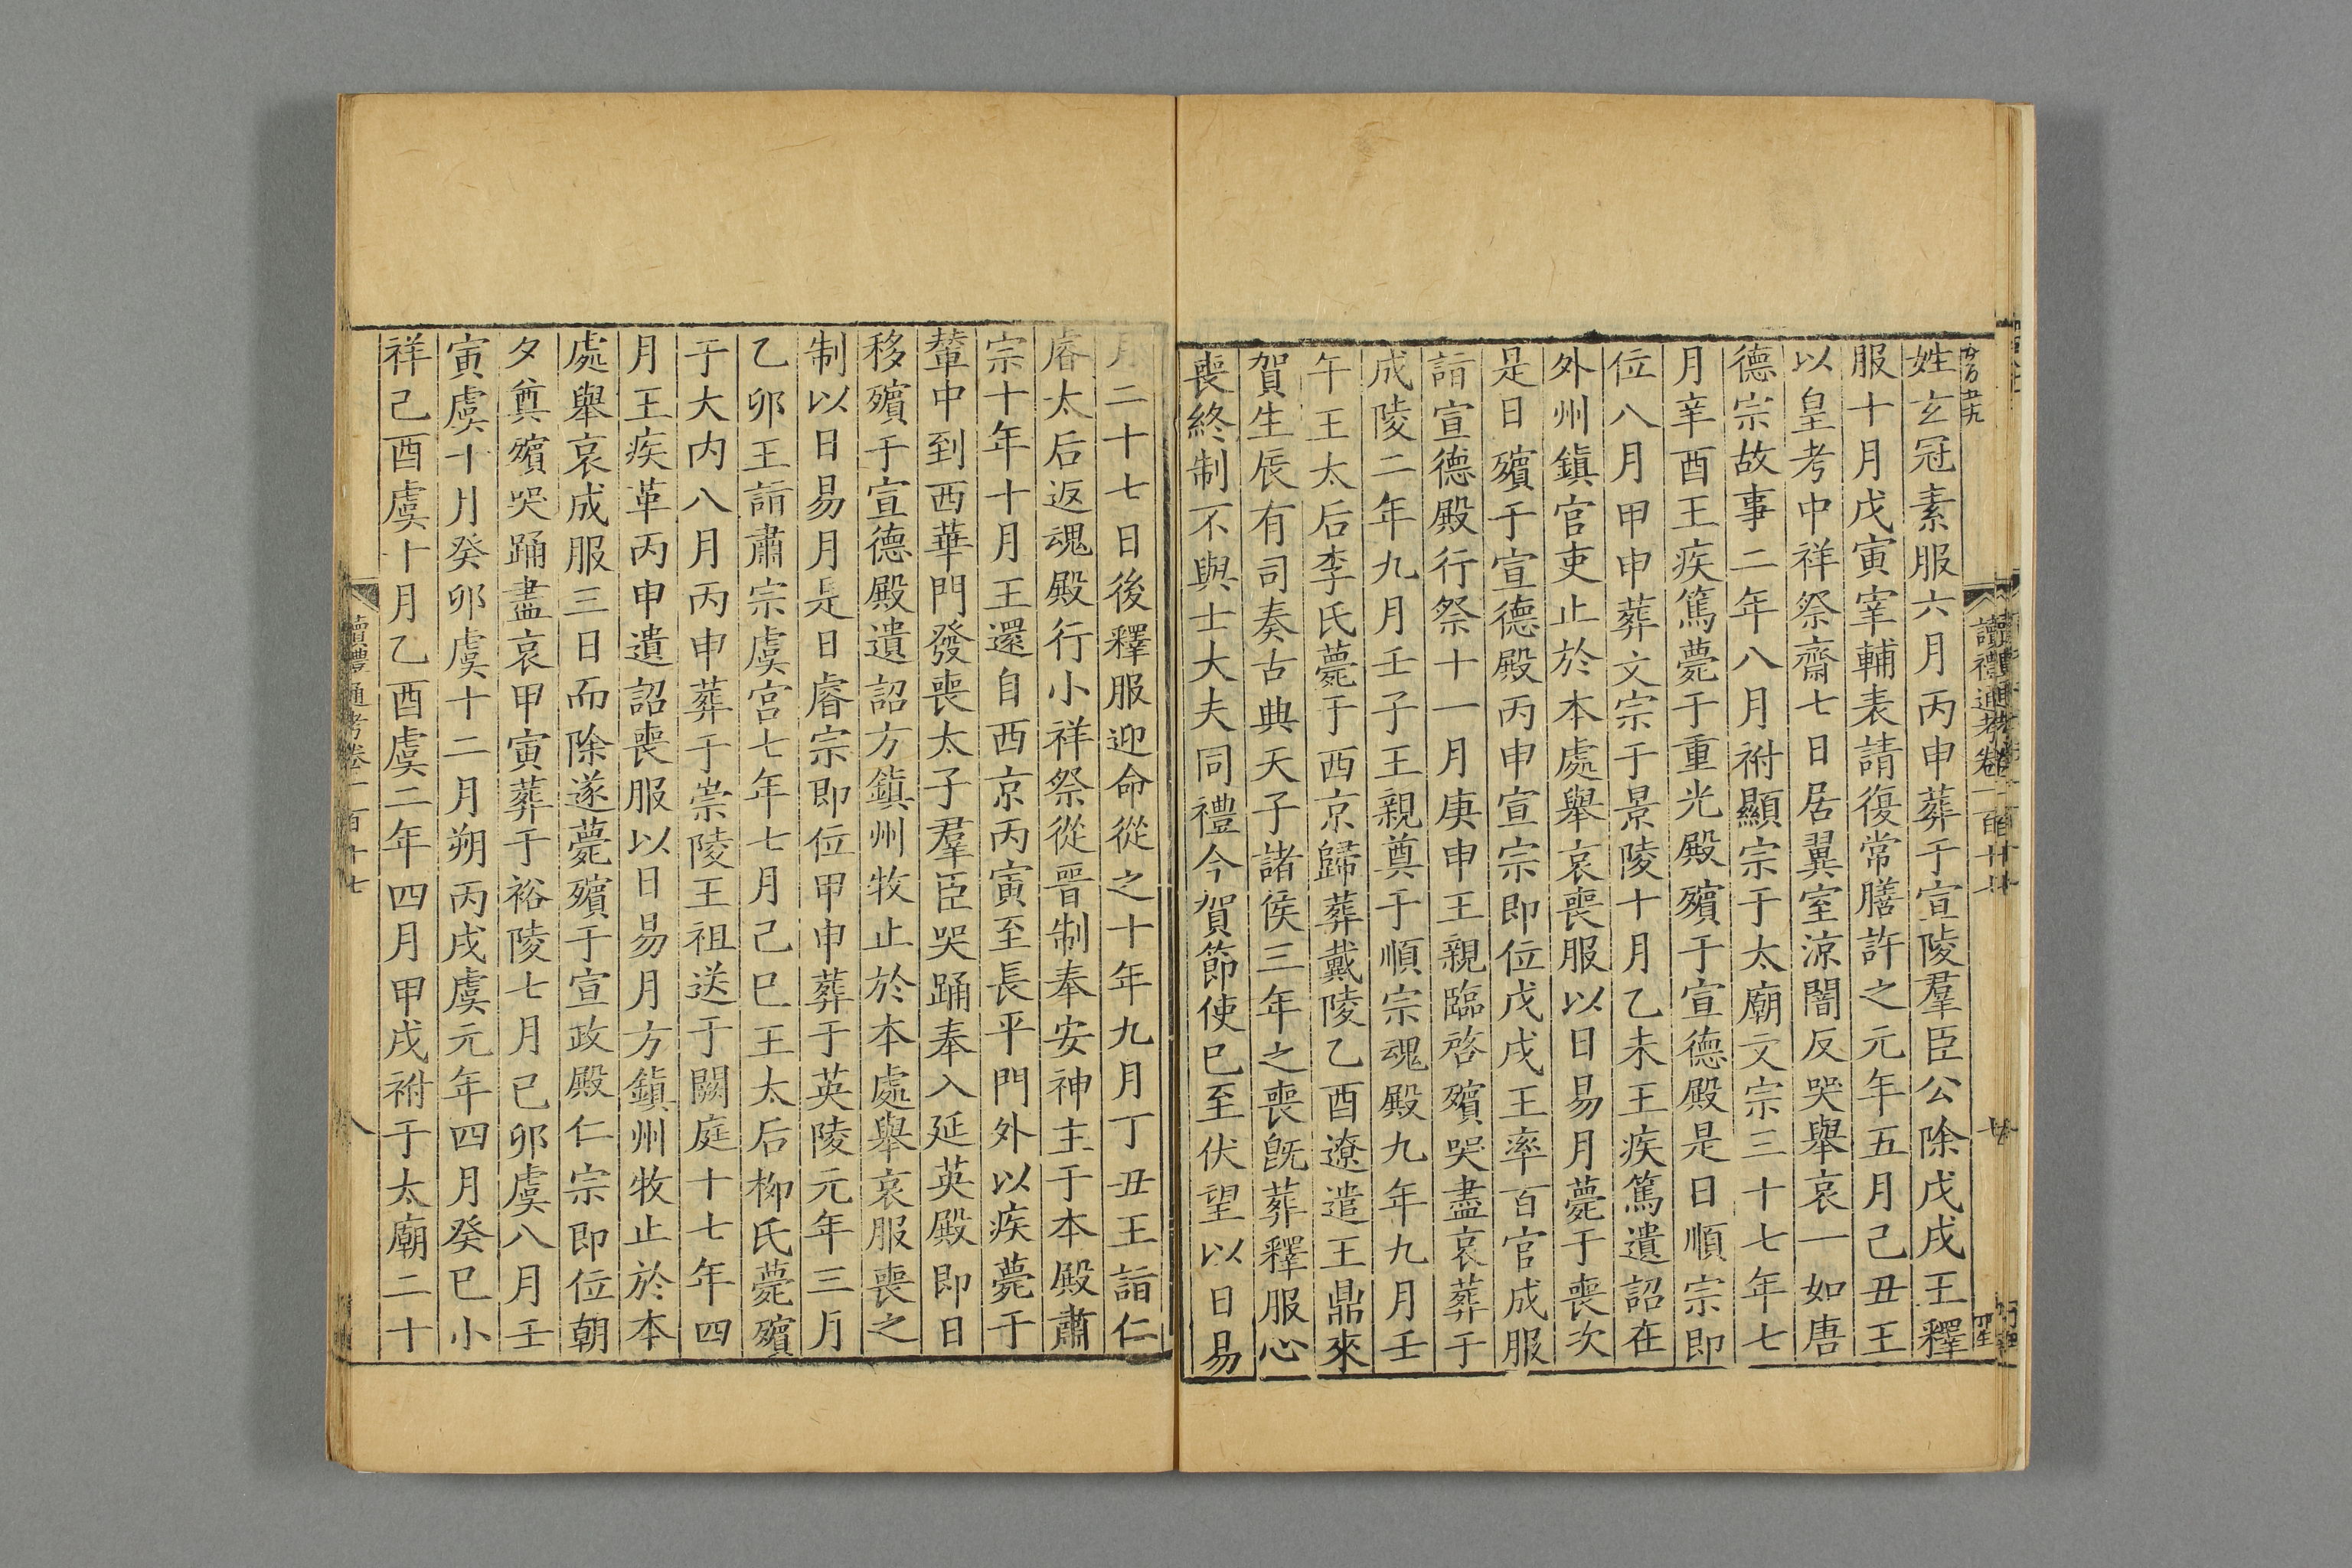 姓玄冠素服六月丙申葬于宣陵羣臣公除戊戌王釋
服十月戊寅宰輔表請復常膳許之元年五月己丑王
以皇考中祥祭齋七日居翼室涼闇反哭舉哀一如唐
德宗故事二年八月祔顯宗于太廟文宗三十七年七
月辛酉王疾篤薨于重光殿殯于宣德殿是日順宗即
位八月甲申葬文宗于景陵十月乙未王疾篤遺詔在
外州鎮官吏止於本處舉哀喪服以日易月薨于喪次
是日殯于宣德殿丙申宣宗即位戊戌王率百官成服
詣宣德殿行祭十一月庚申王親臨啓殯哭盡哀葬于
成陵二年九月壬子王親奠于順宗魂殿九年九月壬
午王太后李氏薨于西京歸葬戴陵乙酉遼遣王鼎來
賀生辰有司奏古典天子諸侯三年之喪旣葬釋服心
喪終制不與士大夫同禮今賀節使已至伏望以日易
月二十七日後釋服迎命從之十年九月丁丑王詣仁
睿太后返魂殿行小祥祭從晉制奉安神主于本殿肅
宗十年十月王還自西京丙寅至長平門外以疾薨于
輦中到西華門發喪太子羣臣哭踊奉入延英殿即日
移殯于宣德殿遺詔方鎮州牧止於本處舉哀服喪之
制以日易月是日睿宗即位甲申葬于英陵元年三月
乙卯王詣肅宗虞宮七年七月己巳王太后柳氏薨殯
于大内八月丙申葬于崇陵王祖送于闕庭十七年四
月王疾革丙申遺詔喪服以日易月方鎮州牧止於本
處舉哀成服三日而除遂薨殯于宣政殿仁宗即位朝
夕奠殯哭踊盡哀甲寅葬于裕陵七月己卯虞八月壬
寅虞十月癸卯虞十二月朔丙戌虞元年四月癸巳小
祥己酉虞十月乙酉虞二年四月甲戌祔于太廟二十
讀禮通考卷一百十七
八